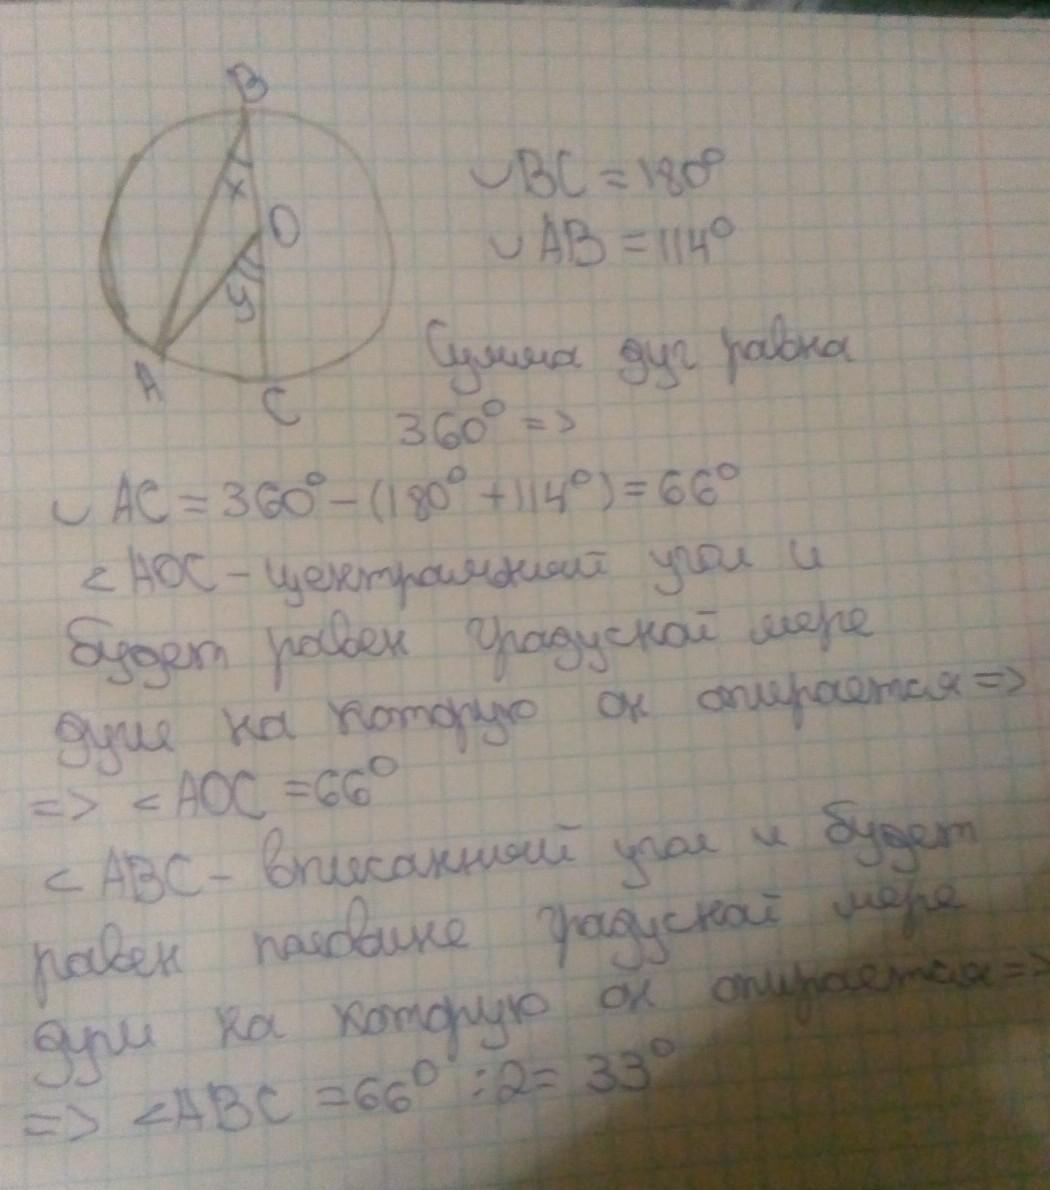 B
x
O
y
A
C
◡BC = 180°
◡AB = 114°
Сумма дуг равна
360° =>
◡ AC = 360° – (180° + 114°) = 66°
< AOC – центральный угол и
будет равен градусной мере
дуги на которую он опирается =>
=> < AOC = 66°
< ABC – вписанный угол и будет
равен половине градусной мере
дуги на которую он опирается =>
=> < ABC = 66° : 2 = 33°